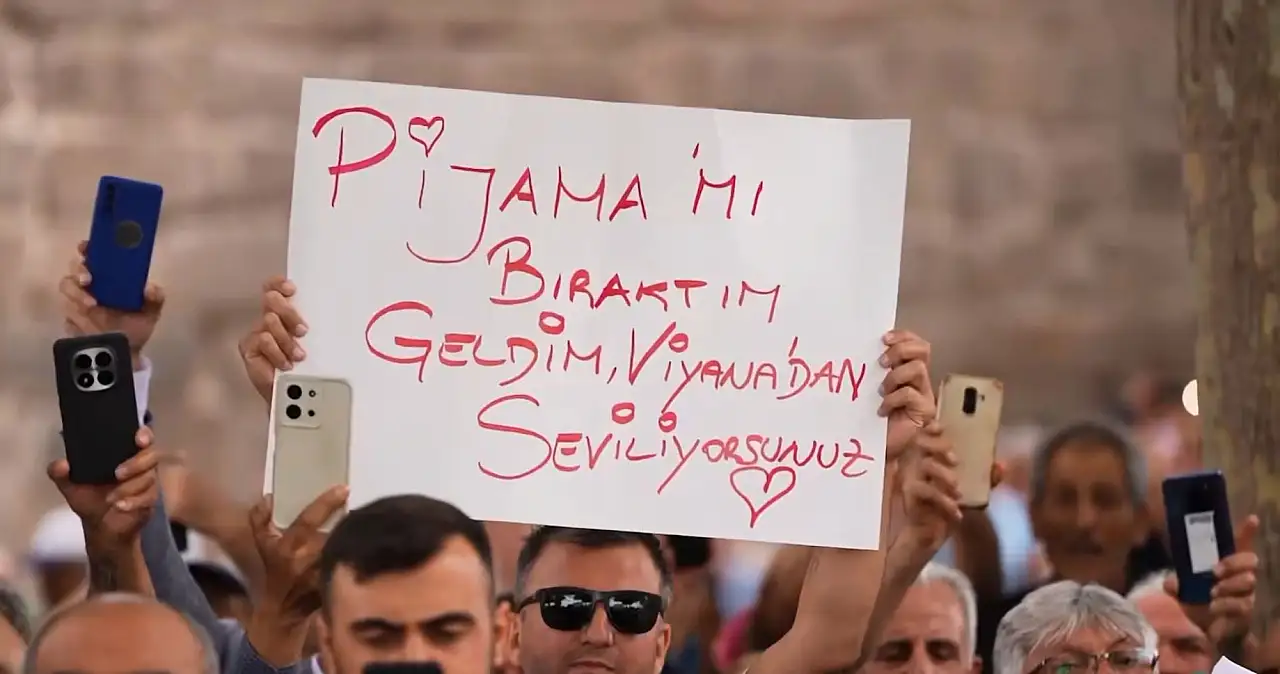 PİJAMA'MI
BIRAKTIM
GELDİM, VİYANA'DAN
SEVİLİYORSUNUZ